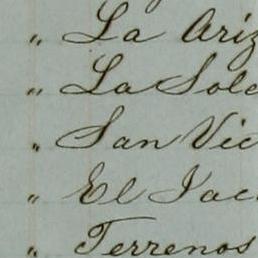 " La Ariz
" La Sole
" San Vic
" El Jac
" Terrenos